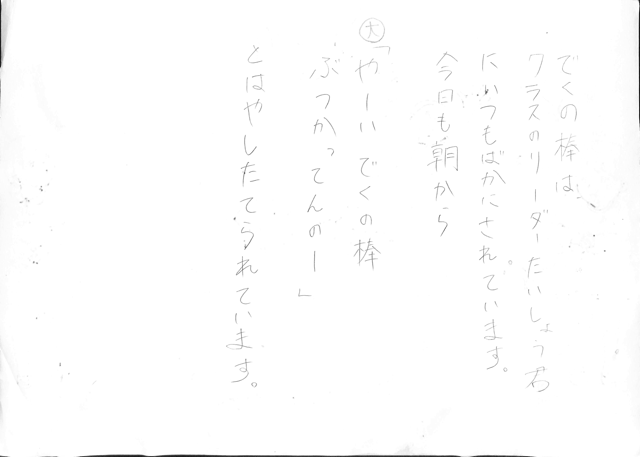 でくの棒は
クラスのリーダーたいしょう君
にいつもばかにされています。
今日も朝から
大「やーい でくの棒
ぶつかってんのー」
とはやしたてられています。